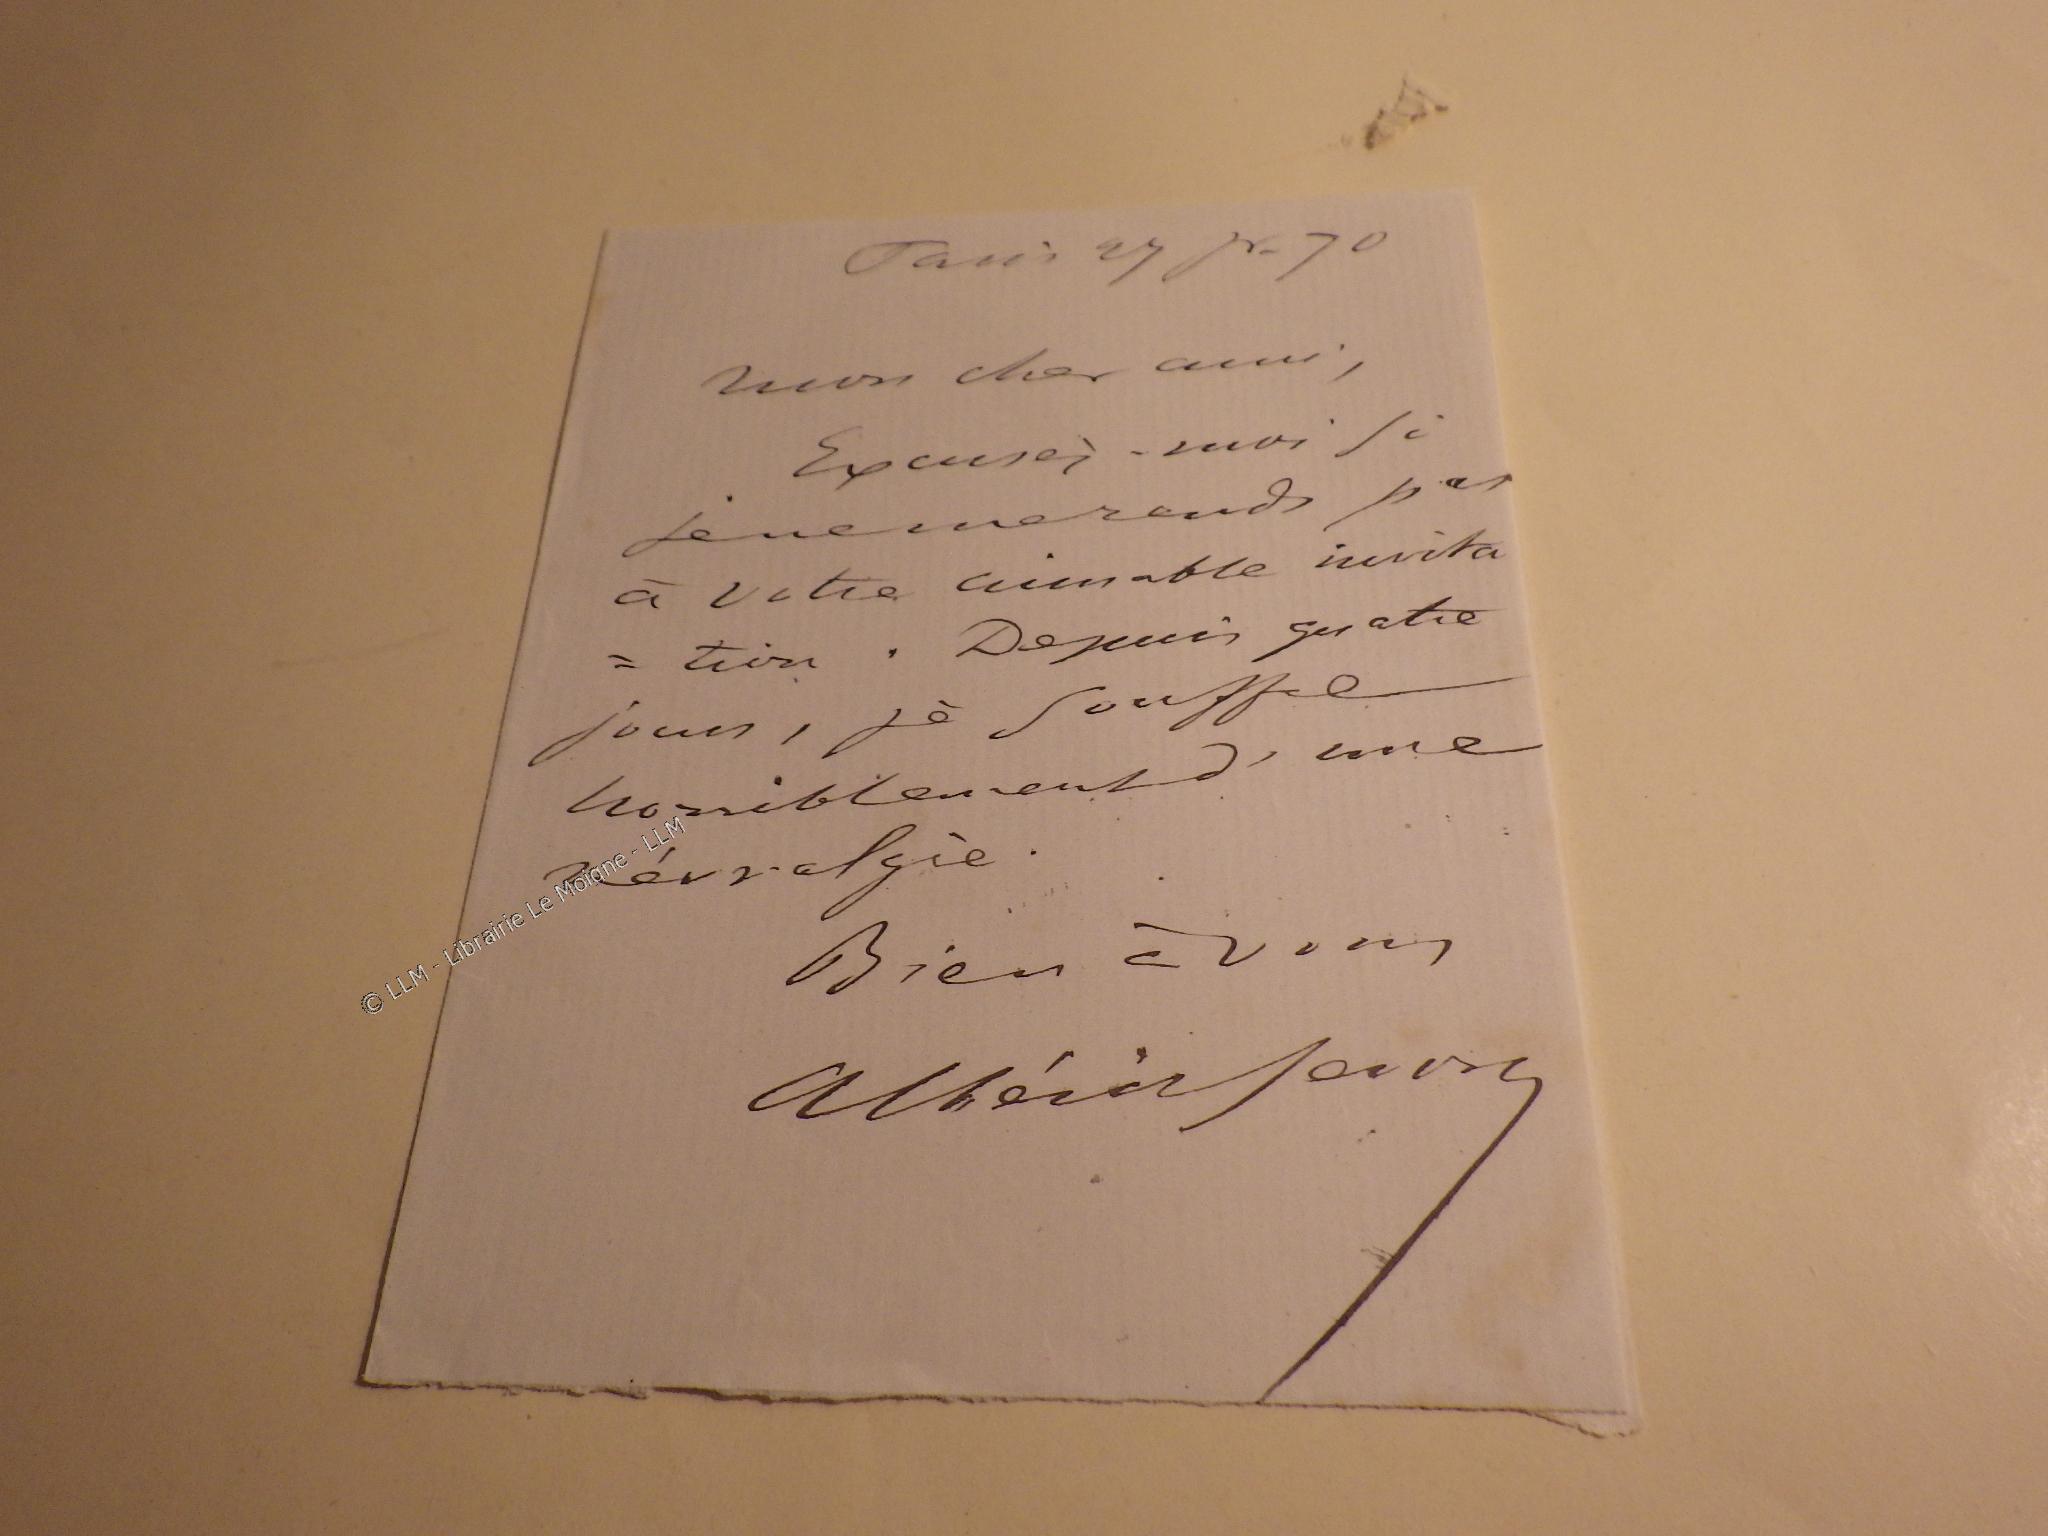 Paris 27 jr. 70
Mon cher ami,
Excusez-moi si
je ne me rends pas
à votre aimable invita
= tion. Depuis quatre
jours, je souffre
horriblement d'une
névralgie.
Bien à vous
Albéric Second
© LLM - Librairie Le Moigne - LLM